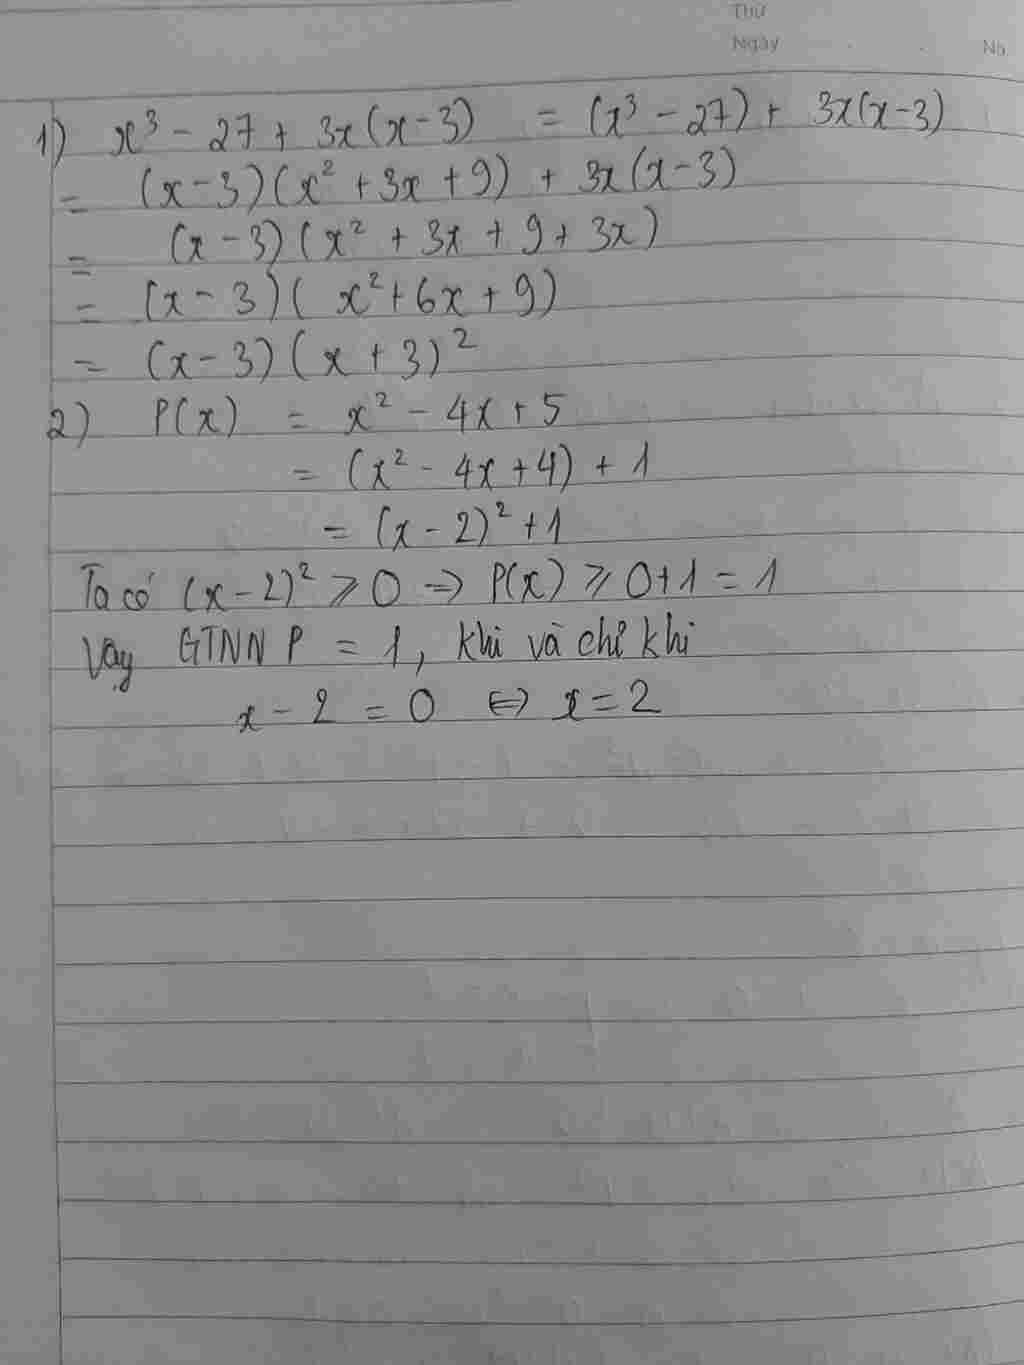 Thứ
Ngày . . No.
1) x³ - 27 + 3x(x-3) = (x³ - 27) + 3x(x-3)
= (x-3)(x² + 3x + 9) + 3x(x-3)
= (x-3)(x² + 3x + 9 + 3x)
= (x-3)(x² + 6x + 9)
= (x-3)(x+3)²
2) P(x) = x² - 4x + 5
= (x² - 4x + 4) + 1
= (x-2)² + 1
Ta có (x-2)² ⩾ 0 => P(x) ⩾ 0+1 = 1
Vậy GTNN P = 1, khi và chỉ khi
x - 2 = 0 <=> x = 2